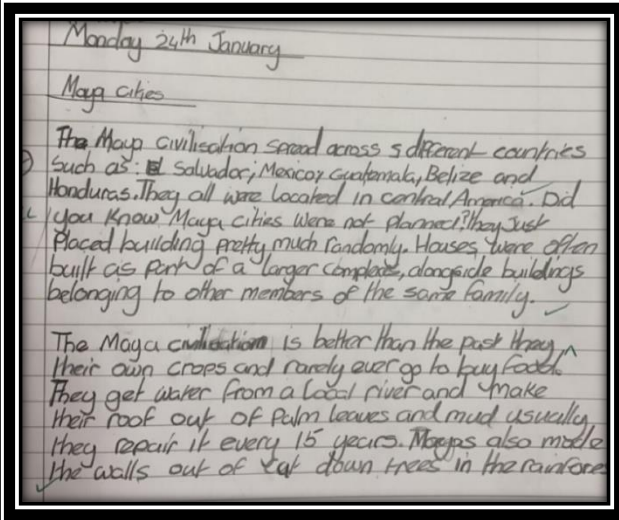 Monday 24th January
Maya Cities
The Maya Civilisation spread across 5 different countries
such as: El Salvador, Mexico, Guatemala, Belize and
Honduras. They all were located in central America. Did
you know Maya cities were not planned? They just
placed building pretty much randomly. Houses were often
built as part of a larger complexs, alongside buildings
belonging to other members of the same family.
The Maya civilisation is better than the past they
their own crops and rarely ever go to buy food.
They get water from a local river and make
their roof out of palm leaves and mud usually
they repair it every 15 years. Mayas also made
the walls out of cut down trees in the rainfore